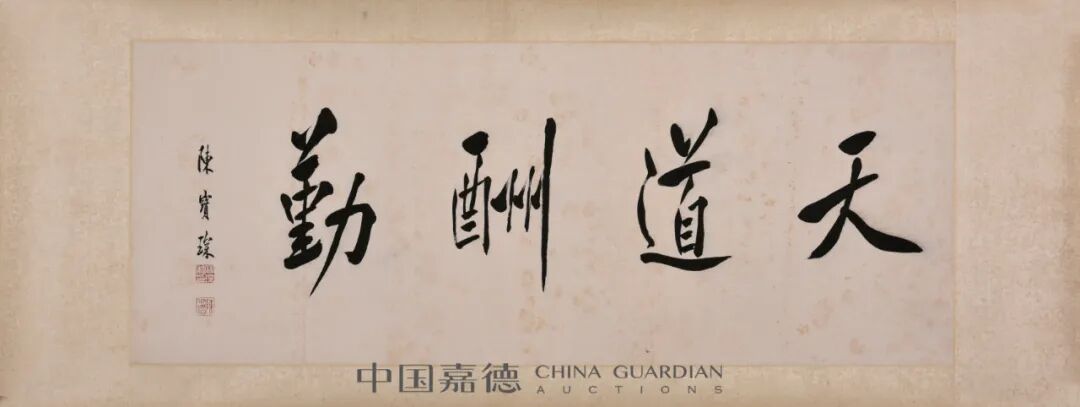 天道酬勤
陳寶琛
中国嘉德 CHINA GUARDIAN
AUCTIONS